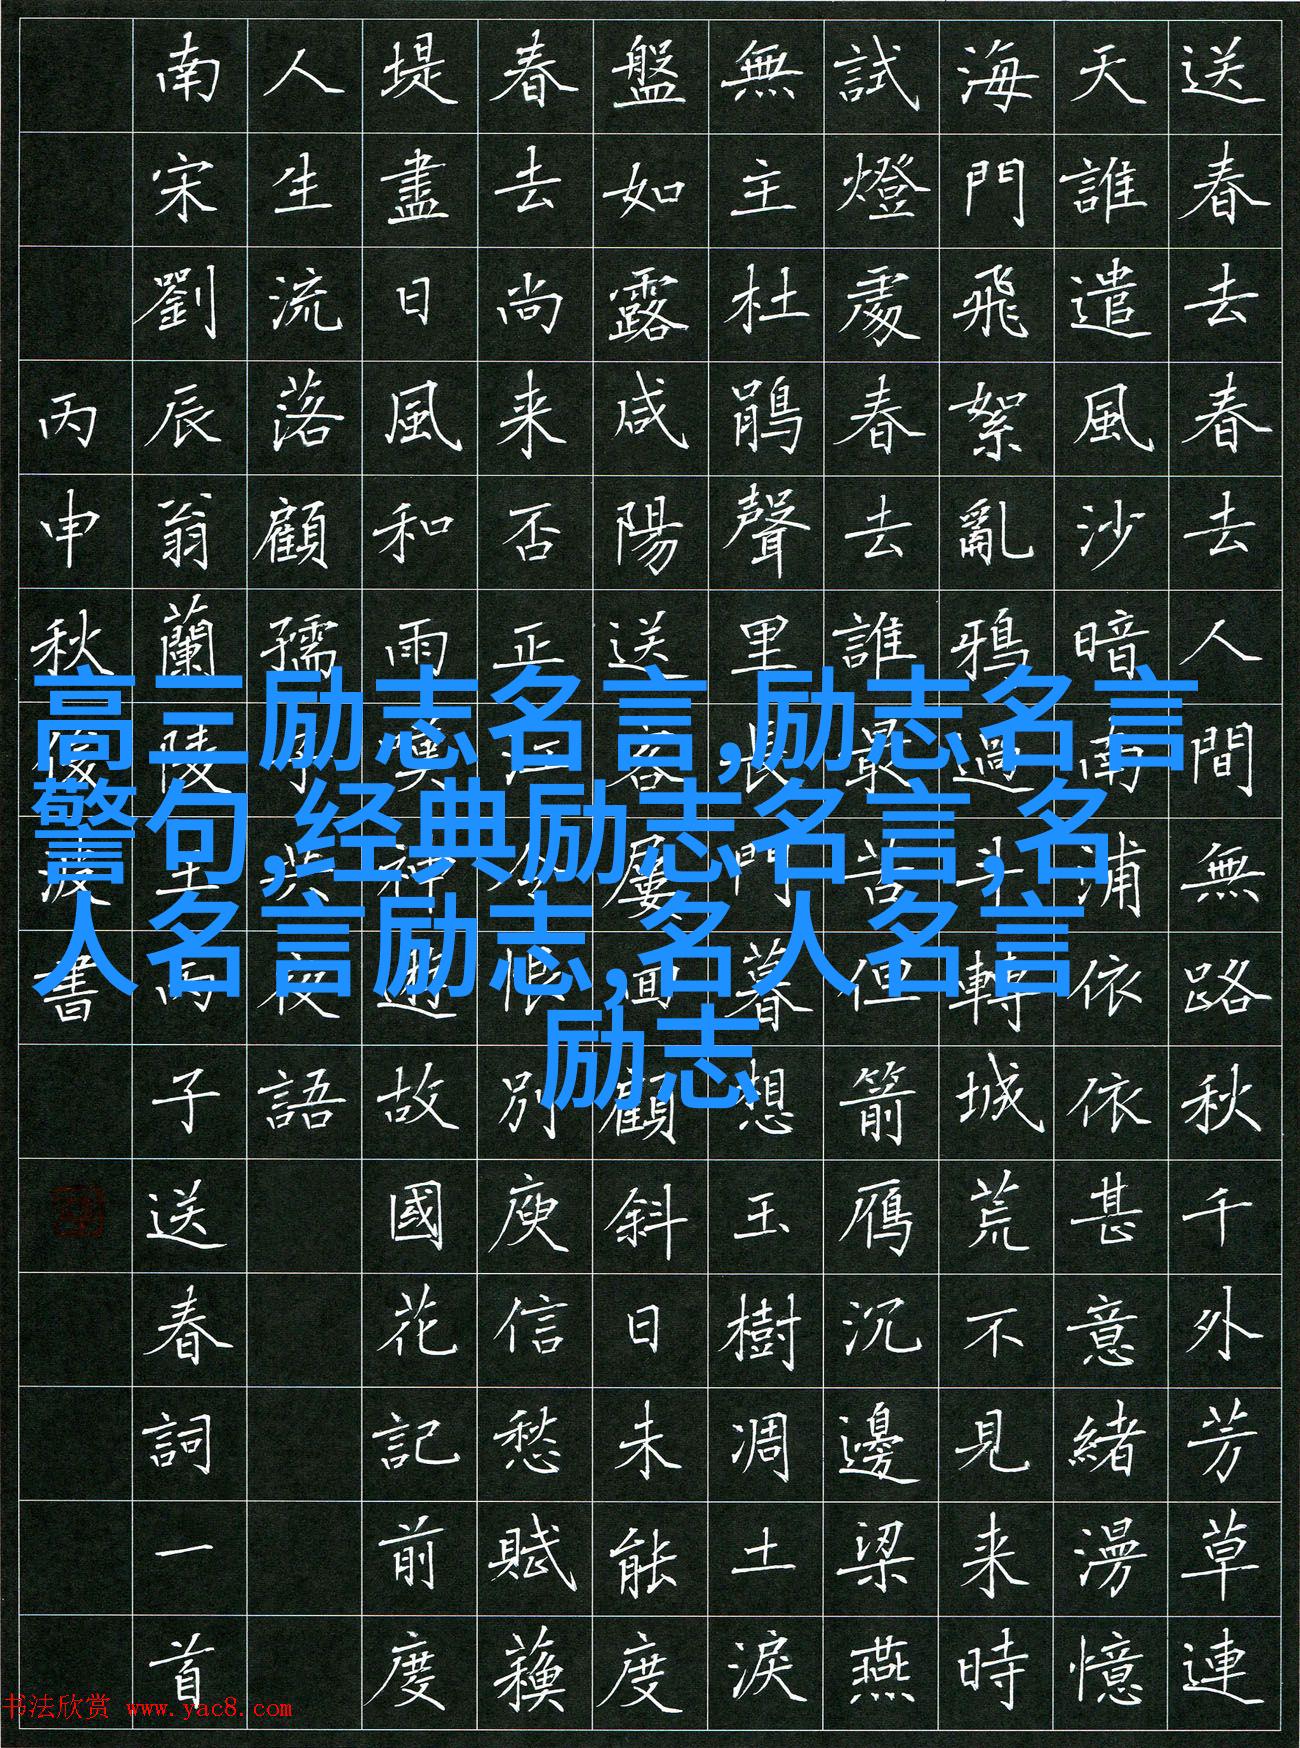 送春去春去人間無路秋千外芳草連
天誰遣風沙暗南浦依依甚意緒漫憶
海門飛絮亂鴉過斗轉城荒不見来時
試燈處春去誰最苦但箭鴈沉邊梁燕
無主杜鵑聲里長門暮想玉樹凋土淚
盤如露咸陽送客屢囬顧斜日未能度
春去尚来否正江令恨別庾信愁賦蘓
堤盡日風和雨嘆神遊故國花記前度
人生流落顧孺子共夜語
南宋劉辰翁蘭陵王丙子送春詞一首
丙申秋俊波書
高三励志名言,励志名言
警句,经典励志名言,名
人名言励志,名人名言
励志
书法欣赏 www.yac8.com